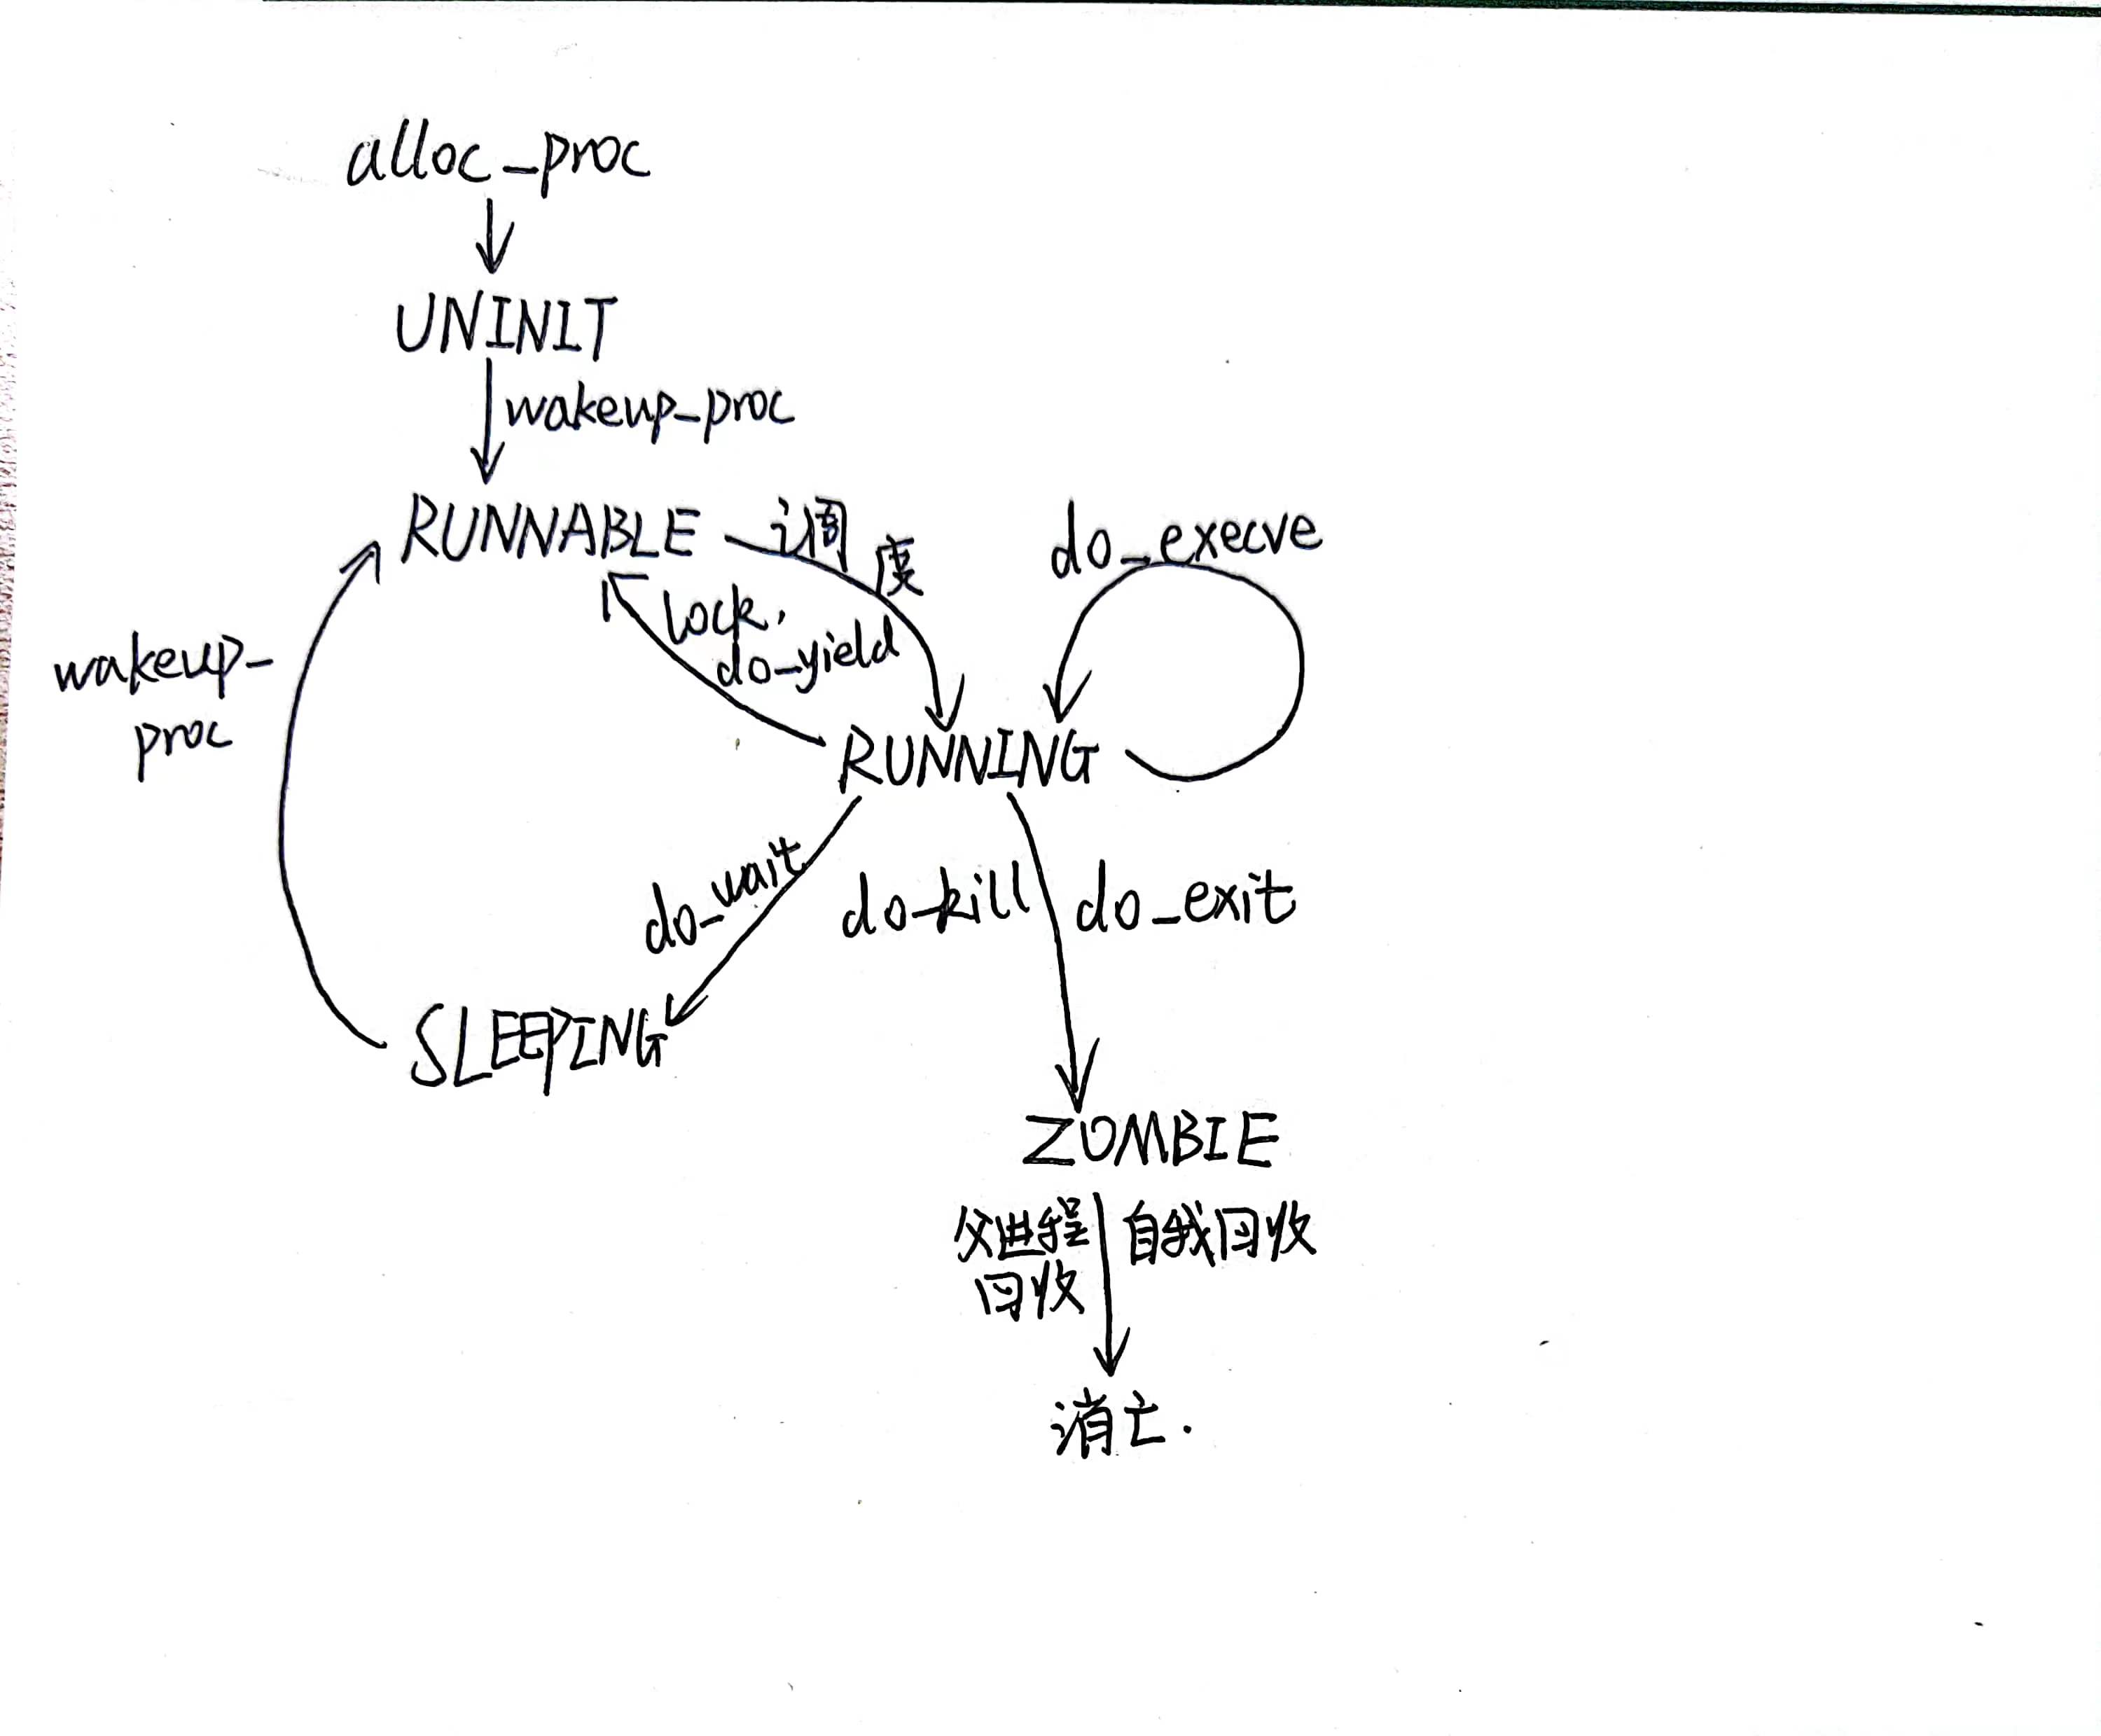 alloc_proc
UNINIT
wakeup_proc
RUNNABLE
调度
do_execve
lock,
do_yield
wakeup_
proc
RUNNING
do_wait
do_kill
do_exit
SLEEPING
ZOMBIE
父进程
回收
自我回收
消亡.